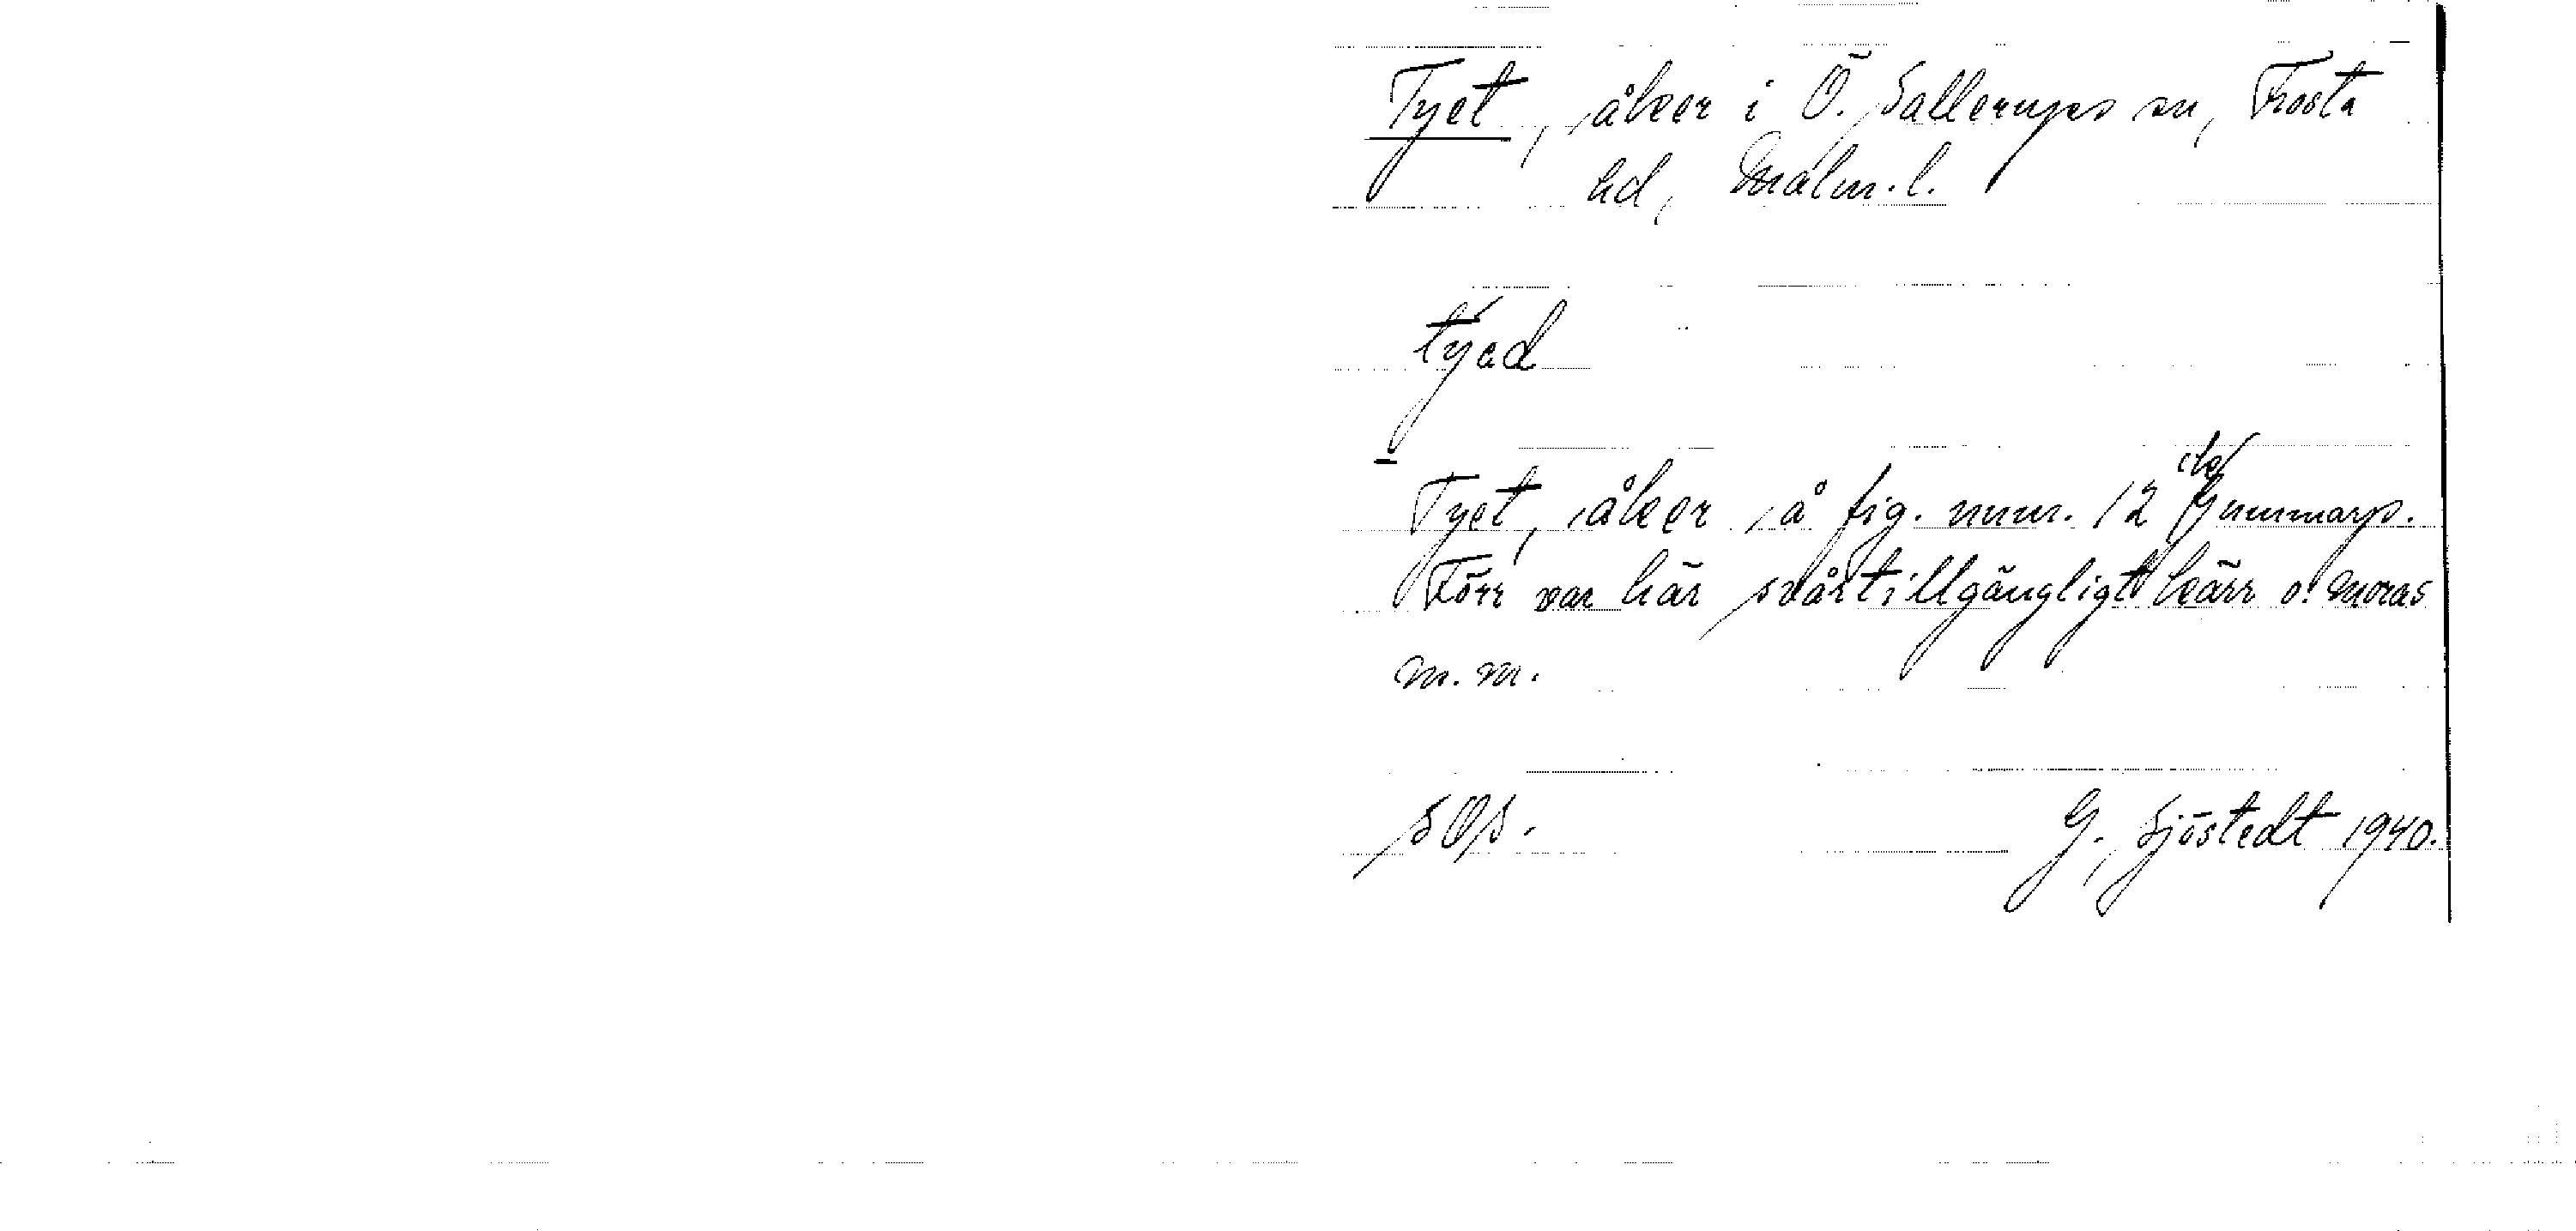 Tyet, åker i Ö. Sallerups sn, Frosta
hd, Malm. l.
týed
Tyet, åker å fig. num. 12 Gummarp.
Förr var här svårtillgängligt kärr o. moras
m. m.
sOs. G. Sjöstedt 1940.